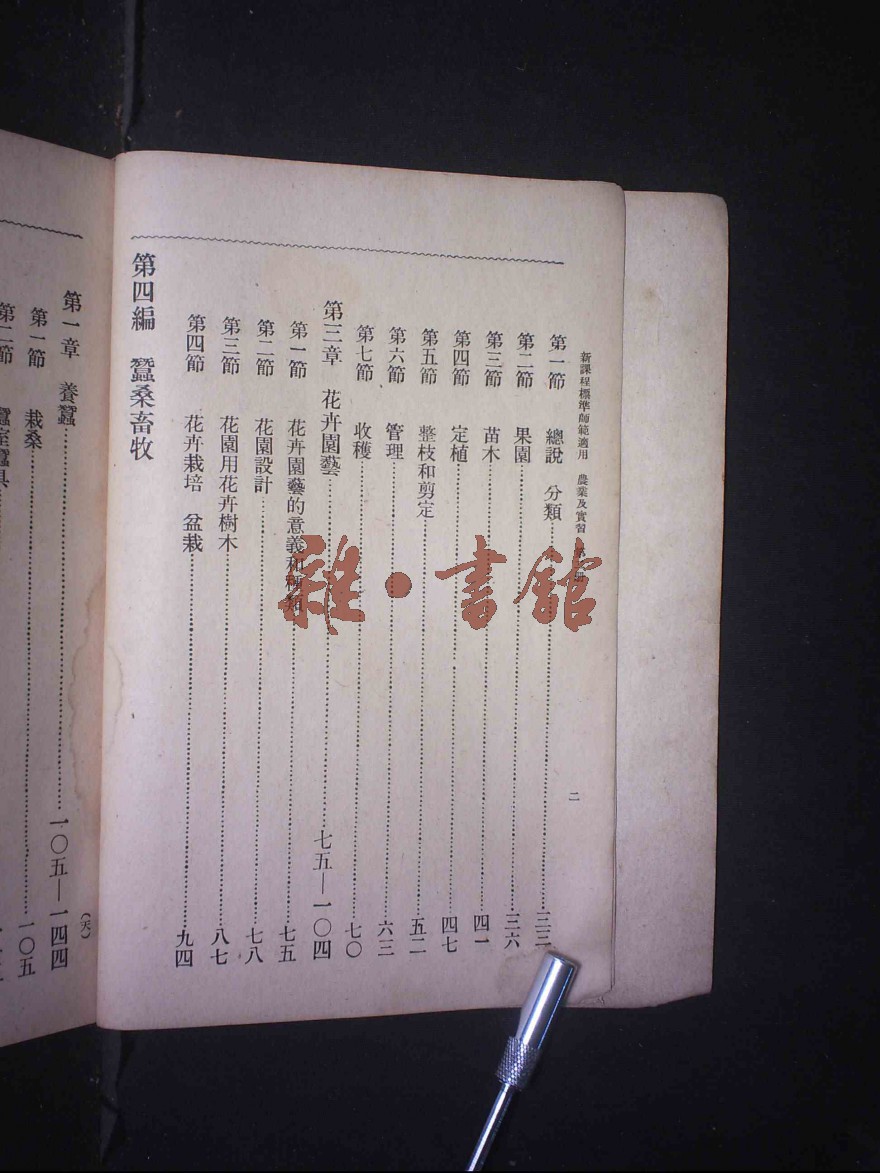 新課程標準師範適用　農業及實習　第　冊
二
第一節　總說　分類……三三
第二節　果園……三六
第三節　苗木……四一
第四節　定植……四七
第五節　整枝和剪定……五二
第六節　管理……六三
第七節　收穫……七〇
第三章　花卉園藝……七五—一〇四
第一節　花卉園藝的意義和種類……七五
第二節　花園設計……七八
第三節　花園用花卉樹木……八七
第四節　花卉栽培　盆栽……九四
第四編　蠶桑畜牧
(天)
第一章　養蠶……一〇五—一四四
第一節　栽桑……一〇五
第二節　蠶室蠶具
雜·書館